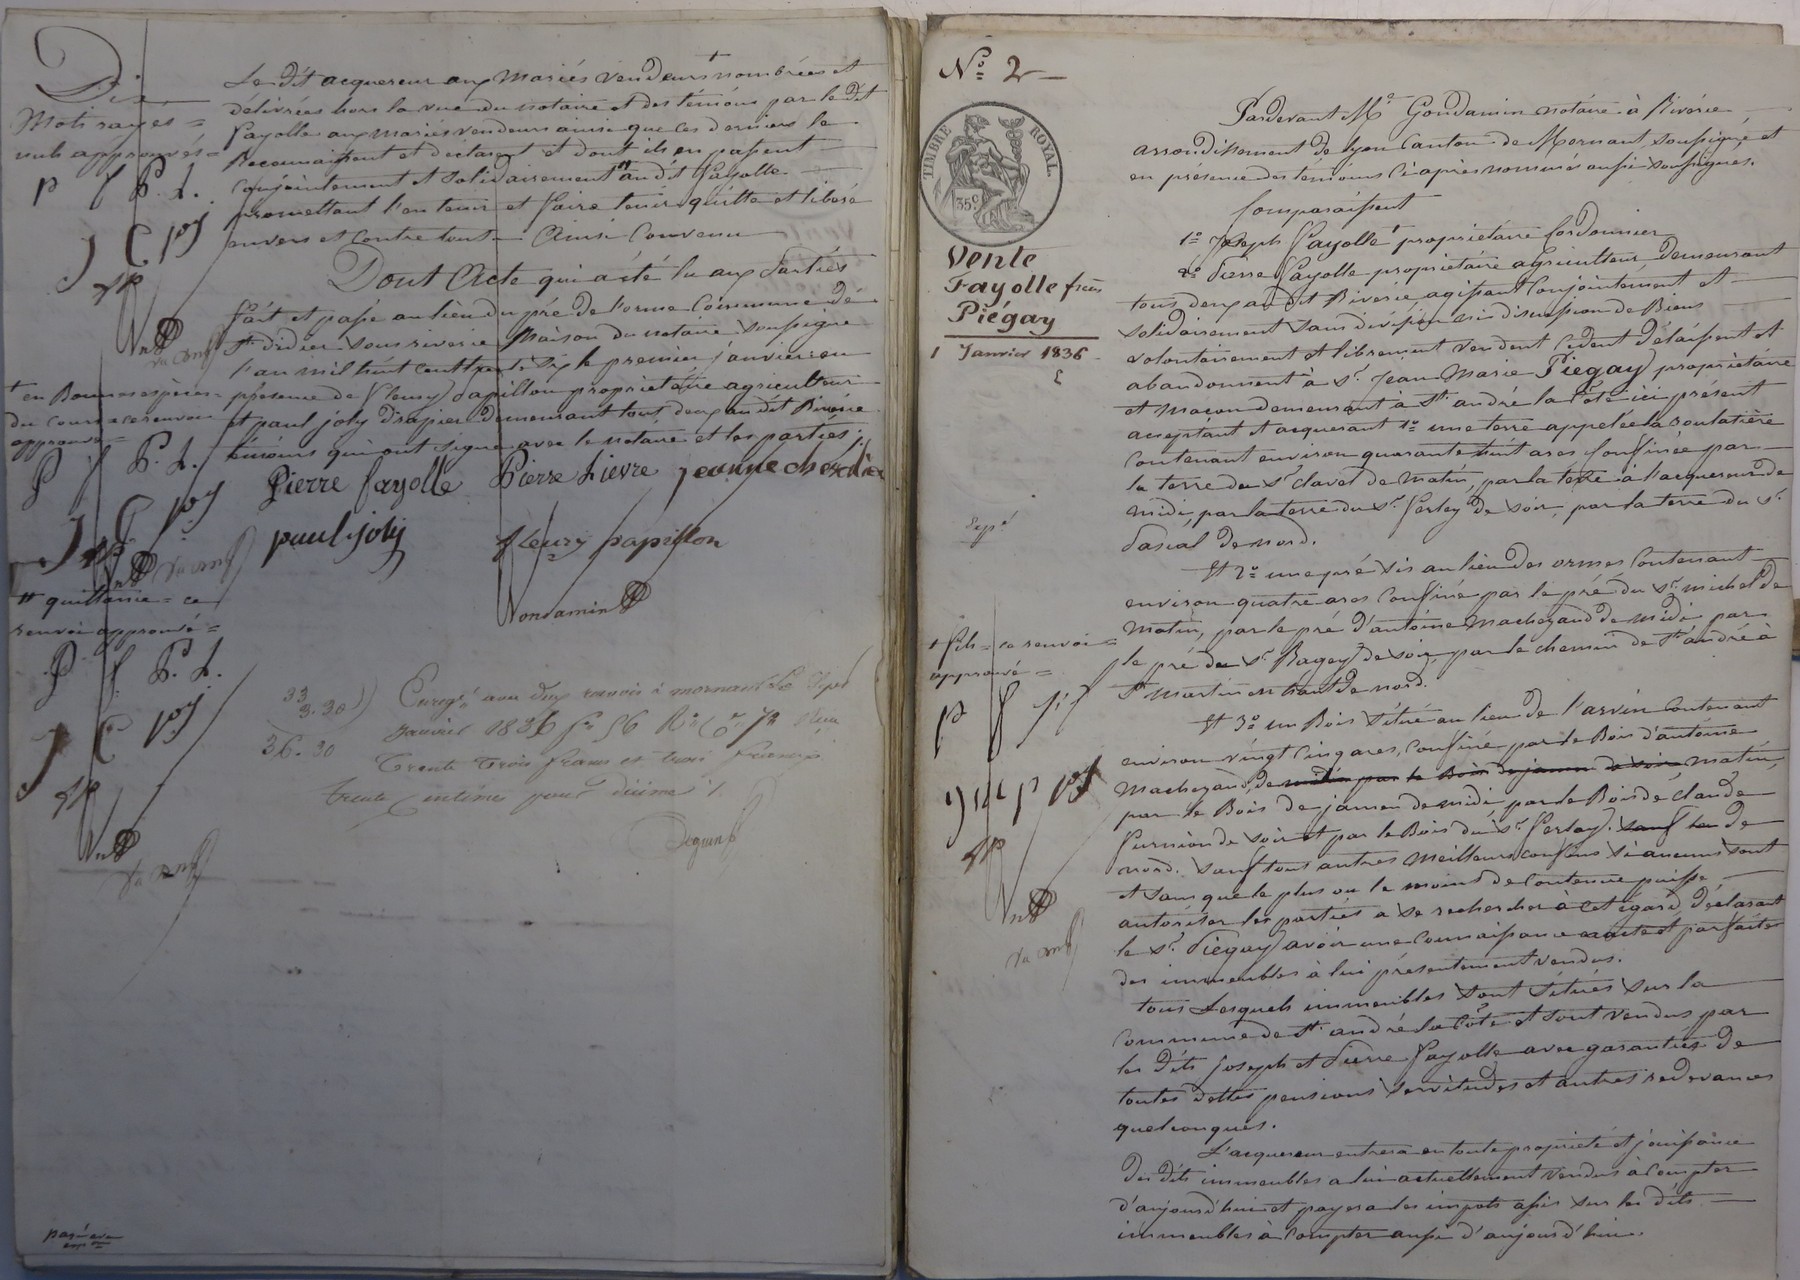 Dix
Mots rayés =
nuls approuvés =
P f P. L.
J C pj
Le dit acquereur aux mariés vendeurs + nombrées et
délivrées hors la vue du notaire et des témoins par le dit
fayolle aux mariés vendeurs ainsi que ces derniers le
reconnaissent et déclarent et dont ils en passent
conjointement et solidairement # au dit fayolle
promettant l'en tenir et faire tenir quitte et libéré
envers et contre tout. Ainsi Convenu
Dont Acte qui a été lu aux Parties
fait et passé au lieu du pré de l'orme Commune de
St didier sous riverie Maison du notaire soussigné
l'an mil huit cent trente six le premier janvier en
présence de fleury Papillon propriétaire agriculteur
et paul joly drapier demeurant tous deux au dit Riverie
témoins qui ont signé avec le notaire et les parties.
+ en Bonnes espèces =
du cours ce renvoi
approuvé =
P f P. L.
J C pj
Pierre fayolle Pierre Lievre jeanne
paul joly fleury papillon
Gondamin
# quittance = ce
renvoi approuvé =
P f. P. L.
J C pj
33
3.30
36.30
Enreg.é aux deux renvois à mornant le Sept
Janvier 1836 fo 56 Ro Co 7 Reçu
Trente Trois francs et trois francs
trente Centimes pour dixième
No 2
TIMBRE ROYAL
35c
Vente
Fayolle frères
Piégay
1 Janvier 1836
Pardevant Me Gondamin notaire à Riverie
arrondissement de lyon Canton de Mornant, soussigné, et
en présence des témoins Ci après nommés aussi soussignés.
Comparaissent
1o Joseph Fayolle + propriétaire Cordonnier
2o Pierre Fayolle propriétaire agriculteur demeurant
tous deux au dit Riverie agissant Conjointement et
solidairement sans division ni discussion de Biens
volontairement et librement vendent Cèdent Délaissent et
abandonnent à Sr Jean Marie Piégay propriétaire
et Maçon demeurant à St andré la Côte ici présent
acceptant et acquerant 1o une terre appelée la
contenant environ quarante huit ares Confinée par
la terre du Sr clavel de Matin, par la terre à l'acquereur de
midi, par la terre du Sr Ferlay de soir, par la terre du Sr
Pascal de nord.
Et 2o une pré sis au lieu des ormes Contenant
environ quatre ares Confiné par le pré du Sr michel de
Matin, par le pré d'antoine Machezaud de midi par
le pré du Sr Ragey de soir, par le chemin de St andré à
St Martin en haut de nord.
+ fils = ce renvoi =
approuvé =
Et 3o un Bois situé au lieu de l'arvin Contenant
environ vingt Cinq ares, Confiné par le Bois d'antoine
Machezaud, de midi par le Bois de de soir matin,
par le Bois de de midi par le Bois de claude
de soir et par le Bois du Sr Ferlay. sauf de
nord. sauf tous autres Meilleurs confins si aucuns sont
et sans que le plus ou le moins de Contenue puisse
autoriser les parties a se rechercher à cet égard, déclarant
le Sr Piégay avoir une Connaissance exacte et parfaite
des immeubles à lui présentement vendus.
tous Lesquels immeubles sont situés sur la
Commune de St andré la Côte et sont vendus par
les dits Joseph et Pierre Fayolle avec garanties de
toutes dettes pensions servitudes et autres redevances
quelconques.
L'acquereur entrera en toute propriété et jouissance
des dits immeubles a lui actuellement vendus à Compter
d'aujourd'hui et payera les impôts assis sur les dits
immeubles à Compter aussi d'aujourd'hui.